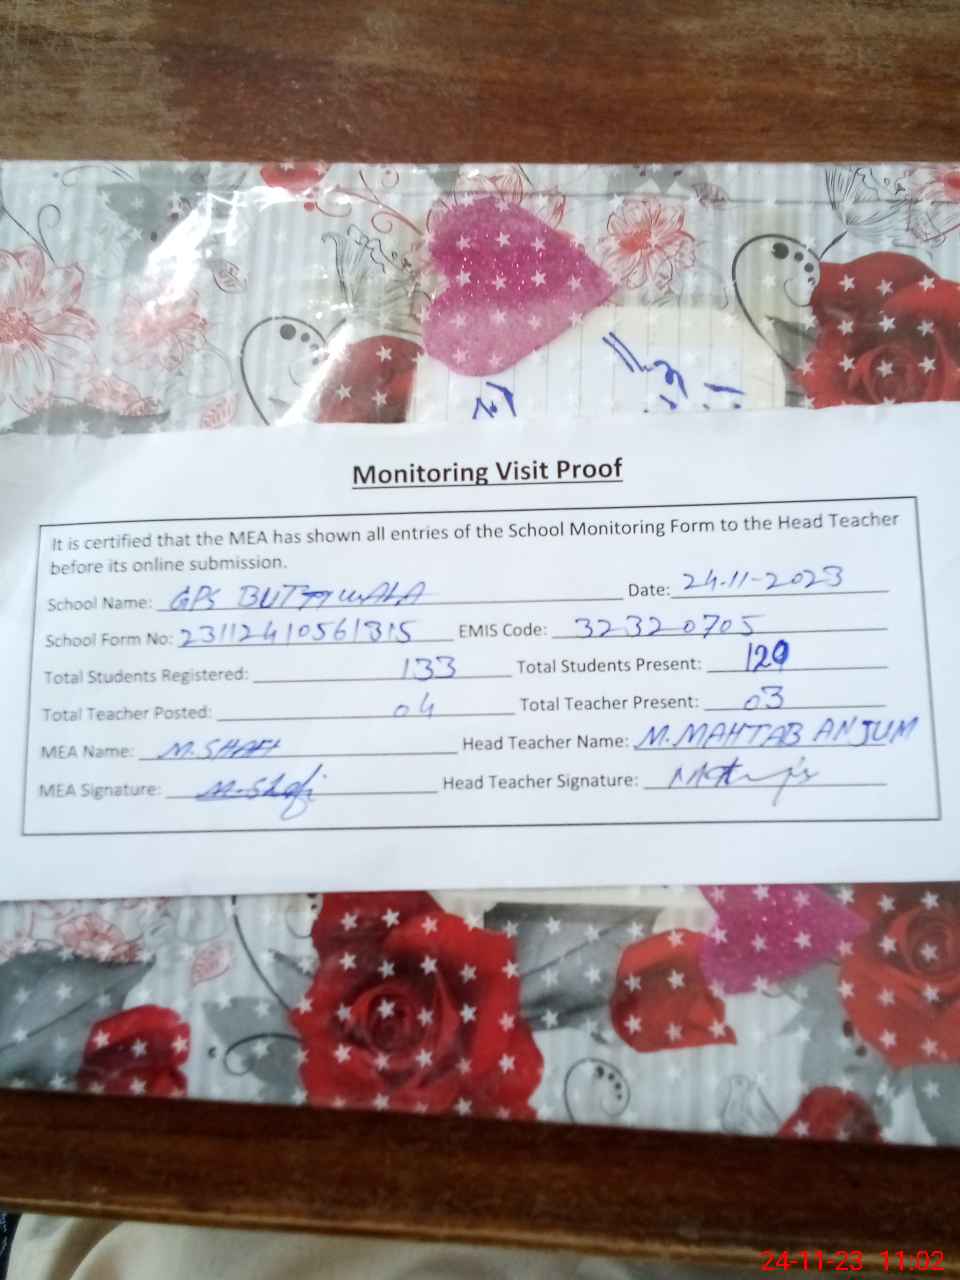 Monitoring Visit Proof
It is certified that the MEA has shown all entries of the School Monitoring Form to the Head Teacher
before its online submission.
School Name: GPS BUTTIWALA Date: 24-11-2023
School Form No: 23112410561315 EMIS Code: 32320705
Total Students Registered: 133 Total Students Present: 129
Total Teacher Posted: 04 Total Teacher Present: 03
MEA Name: M.SHAFI Head Teacher Name: M.MAHTAB ANJUM
MEA Signature: M-Shafi Head Teacher Signature:
24-11-23 11:02